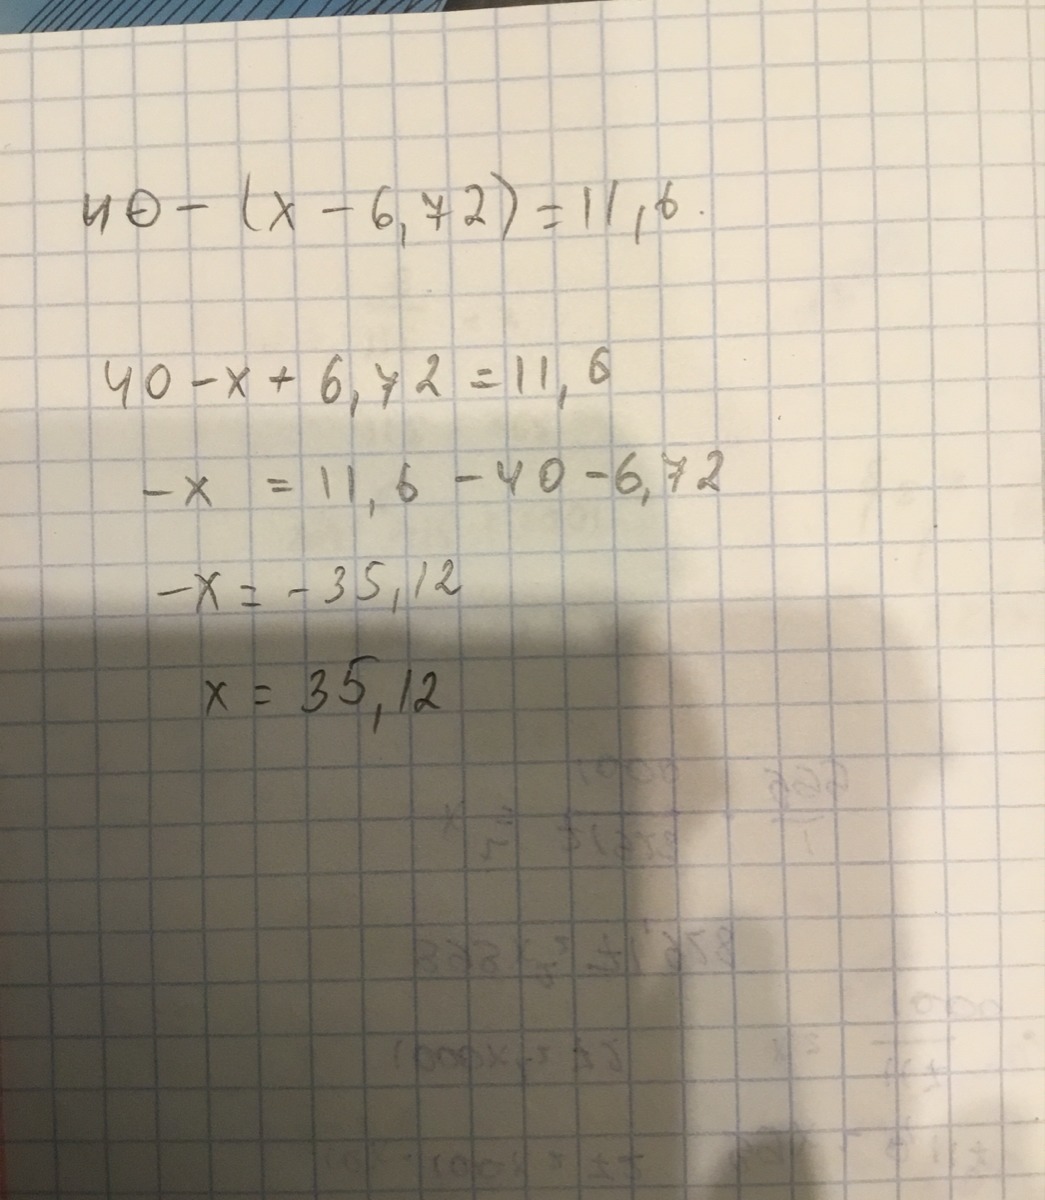 40 - (x - 6,72) = 11,6.
40 - x + 6,72 = 11,6
-x = 11,6 - 40 - 6,72
-x = -35,12
x = 35,12